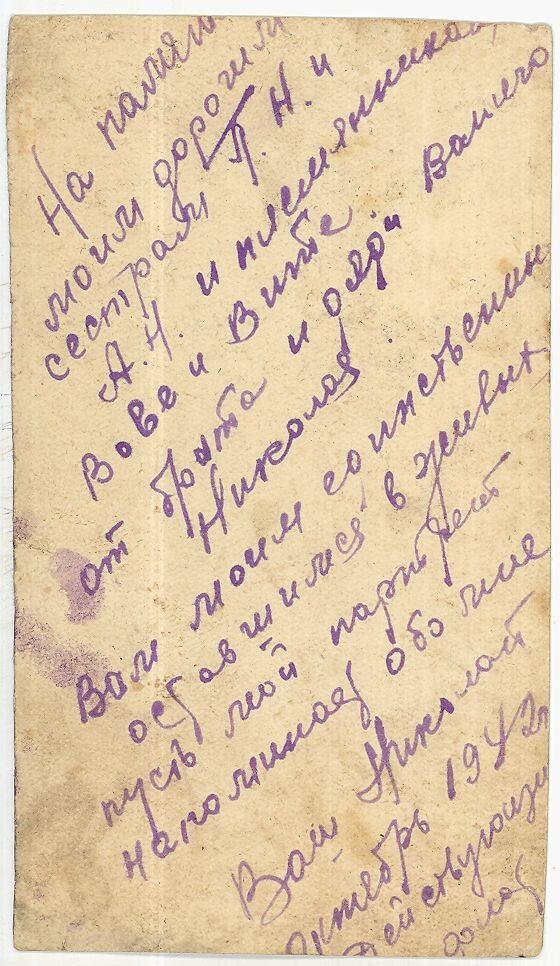 На памят
моим дорогим
сестрам П. Н. и
А. Н. и племянникам,
Вове и Вите. Вашего
от брата и дяди
Николая.
Вам моим единственым
оставшимся в живых,
пусть мой партрет
напоминает обо мне
Ваш Николай
Октебрь 1942г
Действующи
флот